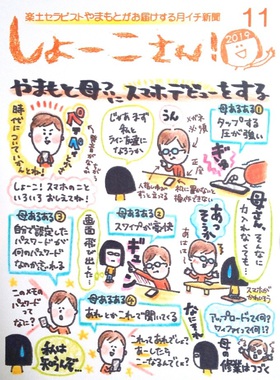 楽土セラピストやまもとがお届けする月イチ新聞
11
しょーこさん!
2019
やまもと母、ついにスマホデビューをする
時代についていかんとね!
しょーこ!スマホのこと
いろいろおしえてね!
じゃあまず
私と
ライン友達に
なろうか
うん
母あるある①
タップする
圧が強い
ぎゅー
母さん、そんなに
力入れなくても…
あっ
そう?
母あるある②
スワイプが豪快
ギューン
画面飛び出した…
スマホがかわいそう
母あるある③
自分で設定した
パスワードなのに
何のパスワード
なのか忘れる
このメモの
パスワード
って
なに?
私は
知らんな…
母あるある④
あれとかこれで聞いてくる
これってあれでしょ?
あーしたら
こーなるんでしょ?
なに?
アップロードって何?
ワイファイって何?
母作業はつづく